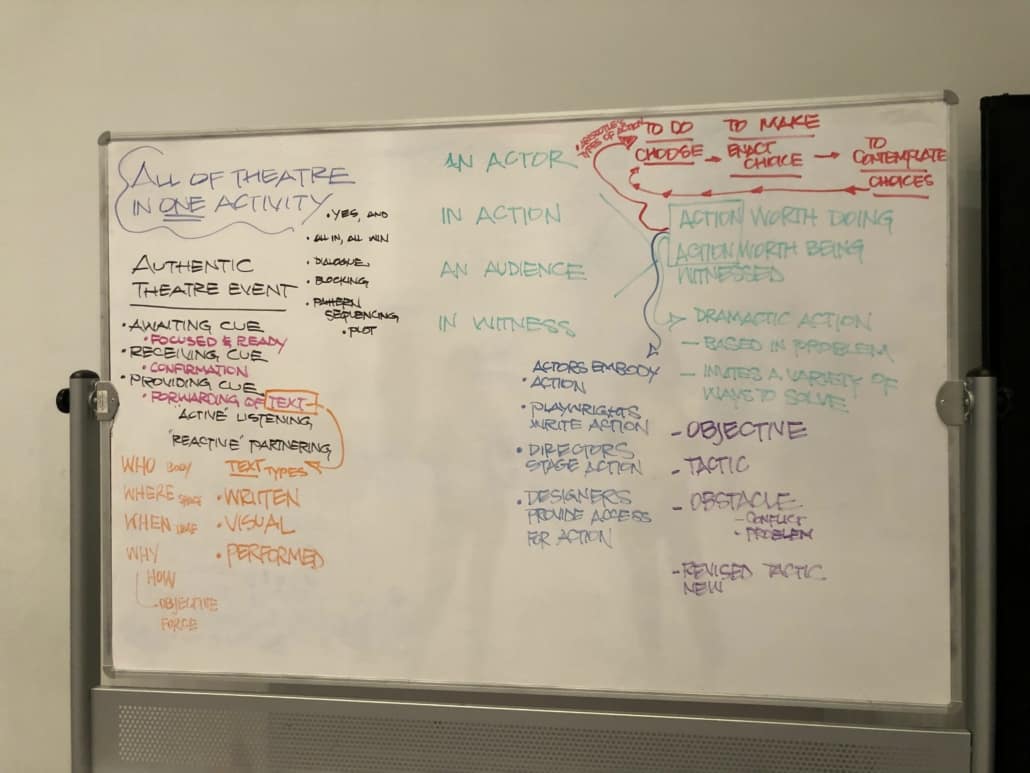 ALL OF THEATRE
IN ONE ACTIVITY
• YES, AND
• ALL IN, ALL WIN
• DIALOGUE
• BLOCKING
• PATTERN
SEQUENCING
• PLOT
AUTHENTIC
THEATRE EVENT
• AWAITING CUE
• FOCUSED & READY
• RECEIVING CUE
• CONFIRMATION
• PROVIDING CUE
• FORWARDING OF TEXT
"ACTIVE" LISTENING
"REACTIVE" PARTNERING
WHO BODY
WHERE SPACE
WHEN TIME
WHY
HOW
OBJECTIVE
FORCE
TEXT TYPES
• WRITTEN
• VISUAL
• PERFORMED
AN ACTOR
IN ACTION
AN AUDIENCE
IN WITNESS
ARISTOTLE'S
TYPES OF ACTION
TO DO
CHOOSE
TO MAKE
ENACT
CHOICE
TO
CONTEMPLATE
CHOICES
ACTION WORTH DOING
ACTION WORTH BEING
WITNESSED
DRAMACTIC ACTION
- BASED IN PROBLEM
- INVITES A VARIETY OF
WAYS TO SOLVE
ACTORS EMBODY
• ACTION
• PLAYWRIGHTS
WRITE ACTION
• DIRECTORS
STAGE ACTION
• DESIGNERS
PROVIDE ACCESS
FOR ACTION
- OBJECTIVE
- TACTIC
- OBSTACLE
- CONFLICT
• PROBLEM
- REVISED TACTIC
NEW